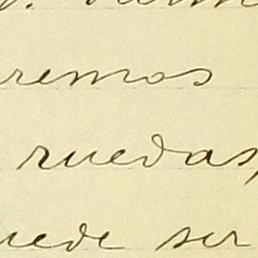 remos
ruedas,
uede ser